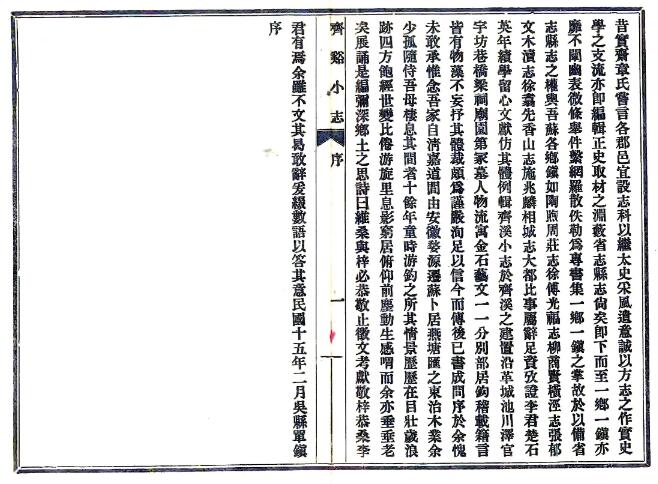 昔實齋章氏嘗言各郡邑宜設志科以繼太史采風遺意誠以方志之作實史
學之支流亦卽編輯正史取材之淵藪省志縣志尙矣卽下而至一鄉一鎭亦
靡不闡幽表微條舉件繫網羅散佚勒爲專書集一鄉一鎭之掌故於以備省
志縣志之權輿吾蘇各鄉鎭如陶煦周莊志徐傅光福志柳商賢橫涇志張郁
文木瀆志徐翥先香山志施兆麟相城志大都比事屬辭足資攷證李君楚石
英年績學留心文獻仿其體例輯齊溪小志於齊溪之建置沿革城池川澤官
宇坊巷橋梁祠廟園第冢墓人物流寓金石藝文一一分別部居鉤稽載籍言
皆有物藻不妄抒其體裁頗爲謹嚴洵足以信今而傳後已書成問序於余愧
未敢承惟念吾家自淸嘉道間由安徽婺源遷蘇卜居燕塘匯之東治木業余
少孤隨侍吾母棲息其間者十餘年童時游釣之所其情景歷歷在目壯歲浪
跡四方飽經世變比倦游旋里息影窮居俯仰前塵動生感喟而余亦垂垂老
矣展誦是編彌深鄉土之思詩曰維桑與梓必恭敬止徵文考獻敬梓恭桑李
齊谿小志
序
一
君有焉余雖不文其曷敢辭爰綴數語以答其意民國十五年二月吳縣單鎭
序